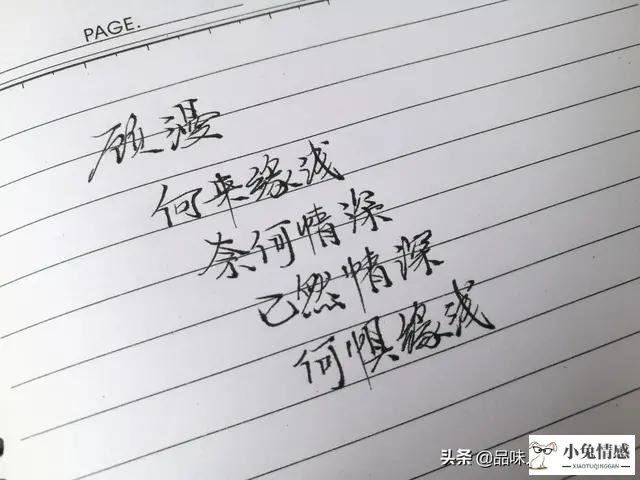 PAGE.
顾漫
何来缘浅
奈何情深
已然情深
何惧缘浅
头条 @品味
小兔情感
XIAOTUQINGGAN